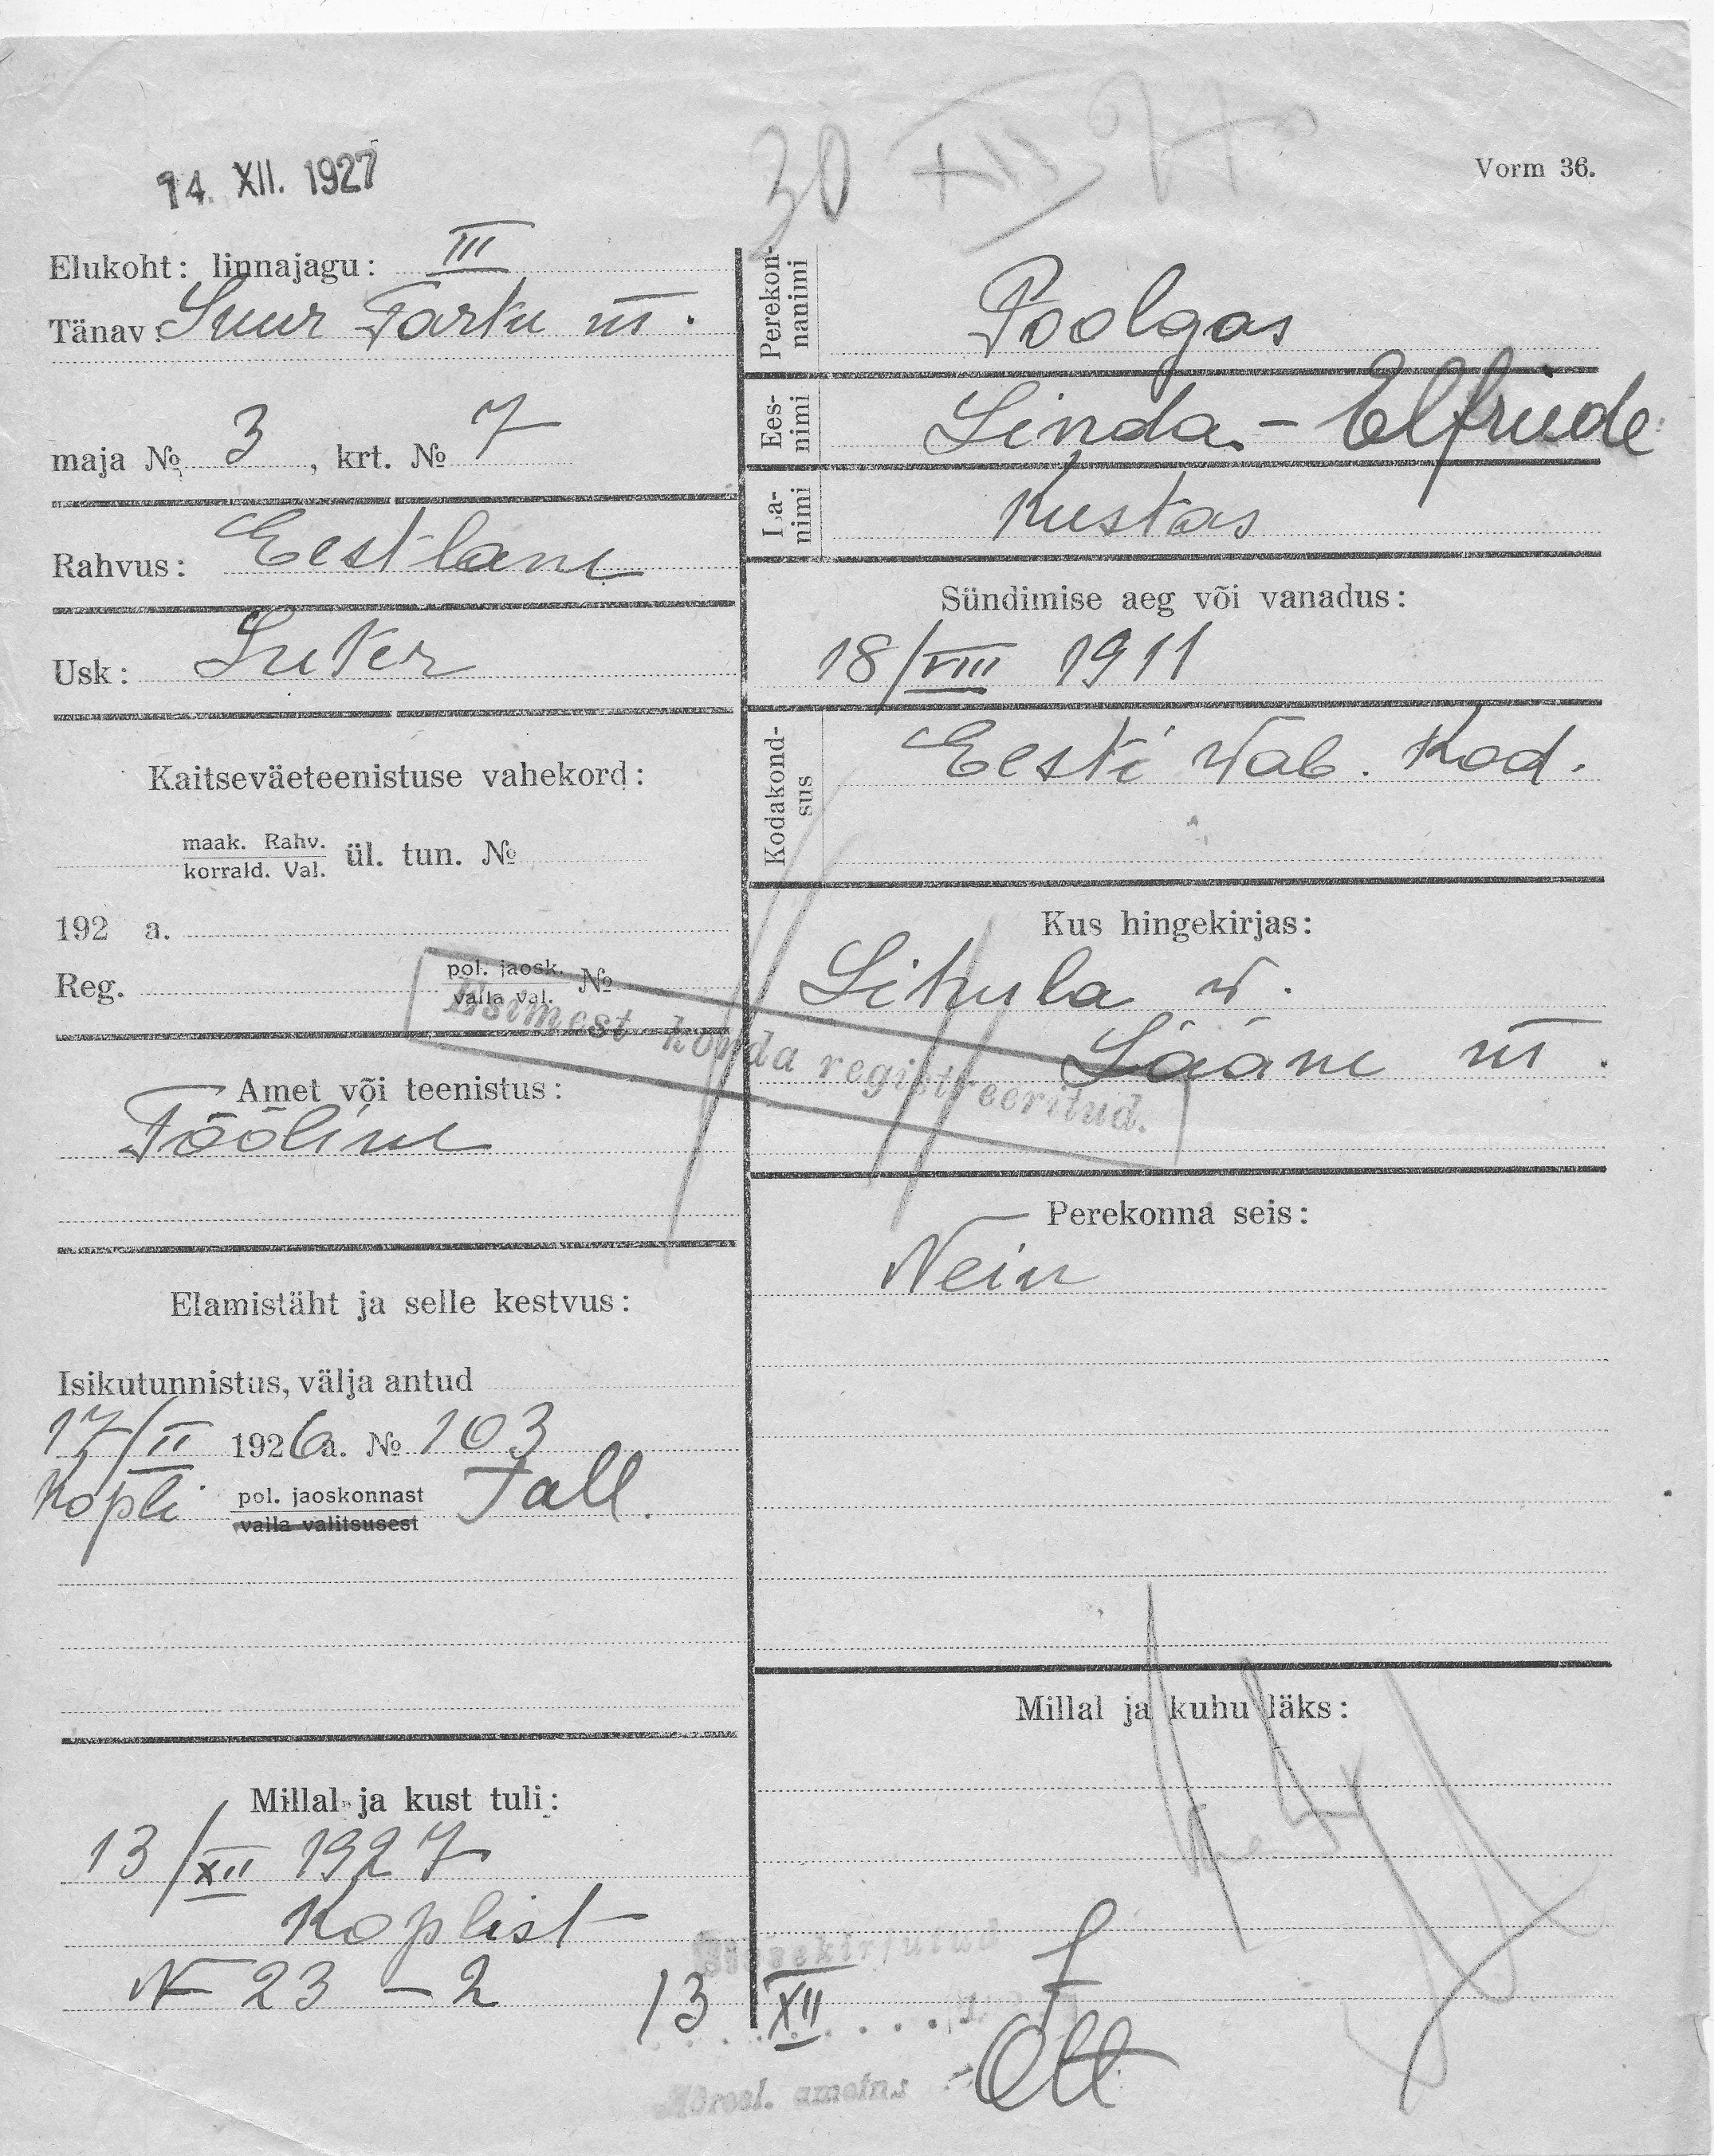 14. XII. 1927
30 XII 27
Vorm 36.
Elukoht: linnajagu: III
Tänav: Suur Tartu m.
maja № 3, krt. № 7
Rahvus: Eestlane
Usk: Luter
Kaitseväeteenistuse vahekord:
maak. Rahv.
korrald. Val. ül. tun. №
192 a.
Reg. pol. jaosk.
valla val. №
Amet või teenistus:
Tööline
Elamistäht ja selle kestvus:
Isikutunnistus, välja antud
17/II 1926 a. № 103
Kopli pol. jaoskonnast Tall.
valla valitsusest
Millal ja kust tuli:
13/XII 1927
Koplist
N 23 - 2
Perekon-
nanimi
Poolgas
Ees-
nimi
Linda - Elfriede
Isa-
nimi
Kustas
Sündimise aeg või vanadus:
18/VIII 1911
Kodakond-
sus
Eesti Wab. Kod.
Kus hingekirjas:
Lihula w.
Lääne m.
Esimest korda registreeritud.
Perekonna seis:
Neiu
Millal ja kuhu läks:
Sissekirjutud
13 XII
Ott